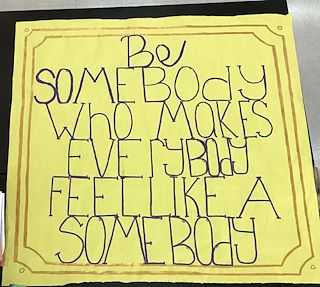 Be
SOMEBODY
WHO MAKES
EVErYBODY
FEEL LIKE A
SOMEBODY